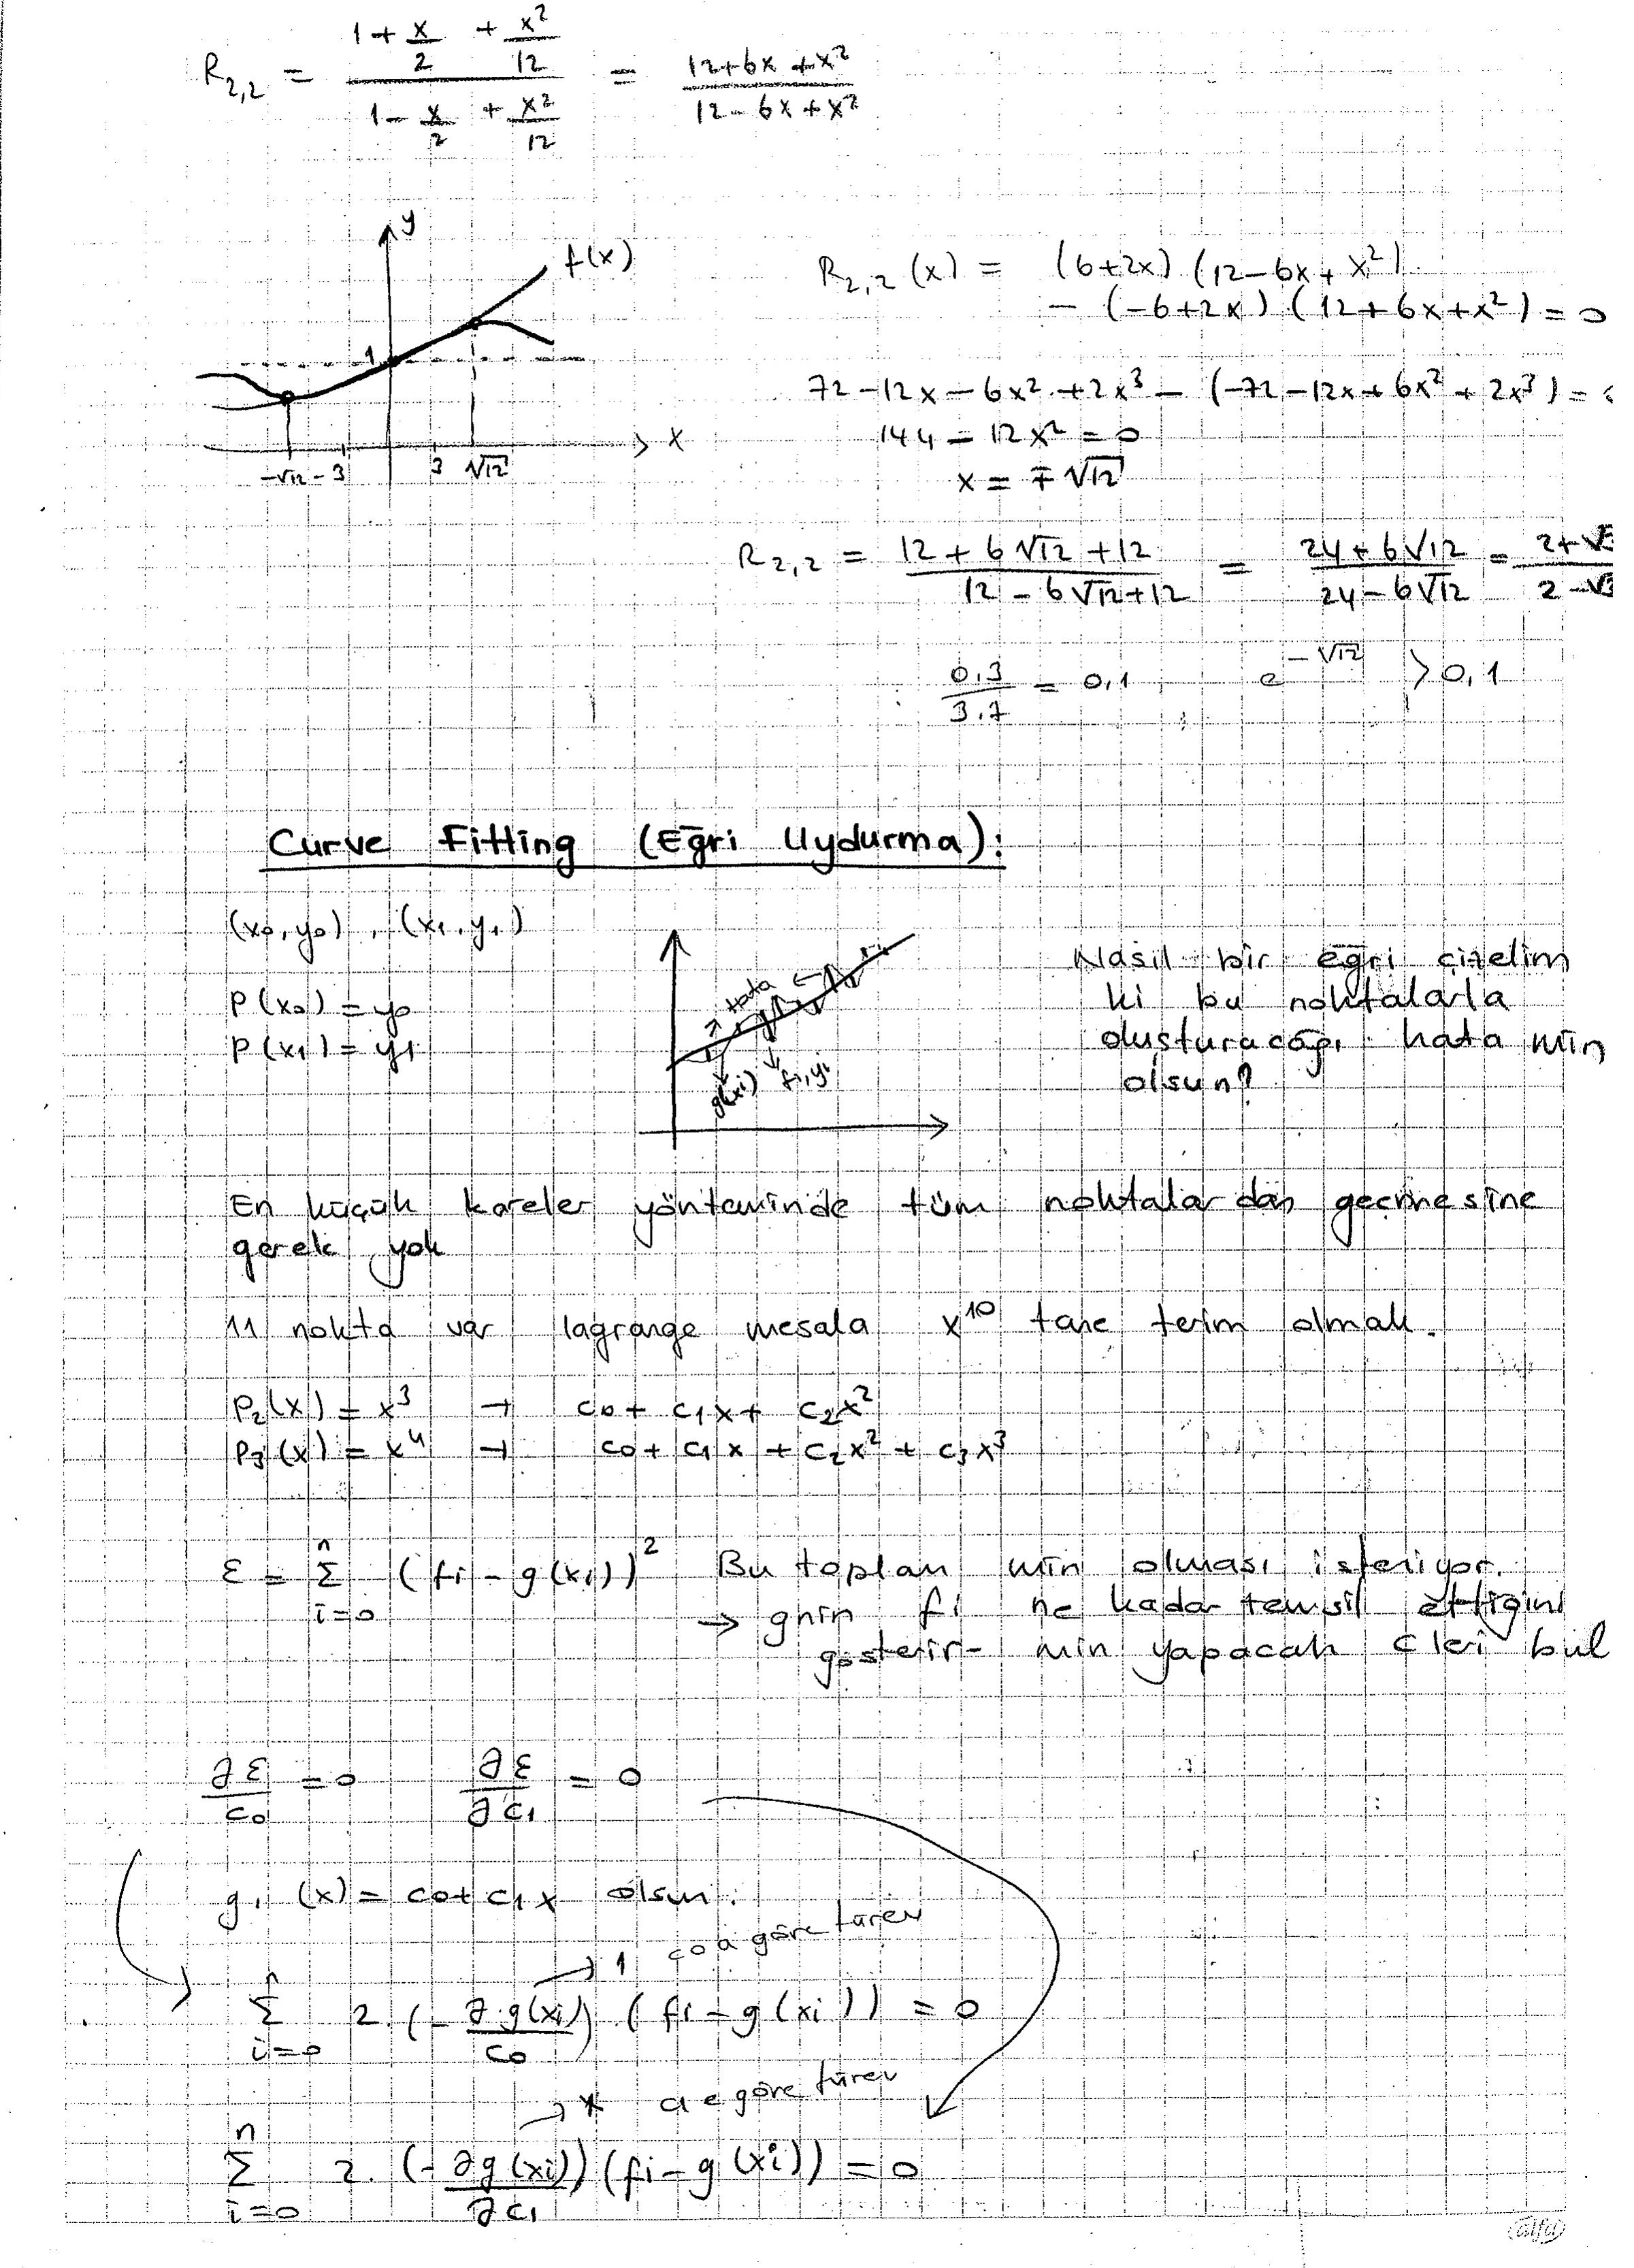 R₂,₂ = (1 + x/2 + x²/12) / (1 - x/2 + x²/12) = (12+6x+x²) / (12-6x+x²)
y
f(x)
1
x
-√12 -3 3 √12
R₂,₂(x) = (6+2x) (12-6x+x²)
- (-6+2x) (12+6x+x²) = 0
72-12x-6x²+2x³ - (-72-12x+6x²+2x³) =
144 - 12x² = 0
x = ∓√12
R₂,₂ = (12+6√12+12) / (12-6√12+12) = (24+6√12) / (24-6√12) = (2+√3) / (2-√3)
0,3/3,7 = 0,1 e^(-√12) > 0,1
Curve Fitting (Eğri Uydurma):
(x₀,y₀), (x₁,y₁)
P(x₀) = y₀
P(x₁) = y₁
hata
g(xi) fi,yi
Nasıl bir eğri çizelim
ki bu noktalarla
oluşturacağı hata min
olsun?
En küçük kareler yönteminde tüm noktalardan geçmesine
gerek yok
11 nokta var lagrange mesela x¹⁰ tane terim olmalı.
P₂(x) = x³ → c₀ + c₁x + c₂x²
P₃(x) = x⁴ → c₀ + c₁x + c₂x² + c₃x³
ε = Σ_{i=0}^{n} (fi - g(xi))² Bu toplan min olması isteniyor.
→ gnin fi ne kadar temsil ettiğini
gösterir- min yapacak c leri bul
∂ε/c₀ = 0 ∂ε/∂c₁ = 0
g₁(x) = c₀+c₁x olsun.
→ 1 c₀a göre türev
Σ_{i=0}^{n} 2.(-∂g(xi)/c₀) (fi - g(xi)) = 0
→ x c₁e göre türev
Σ_{i=0}^{n} 2.(-∂g(xi)/∂c₁) (fi - g(xi)) = 0
alfa